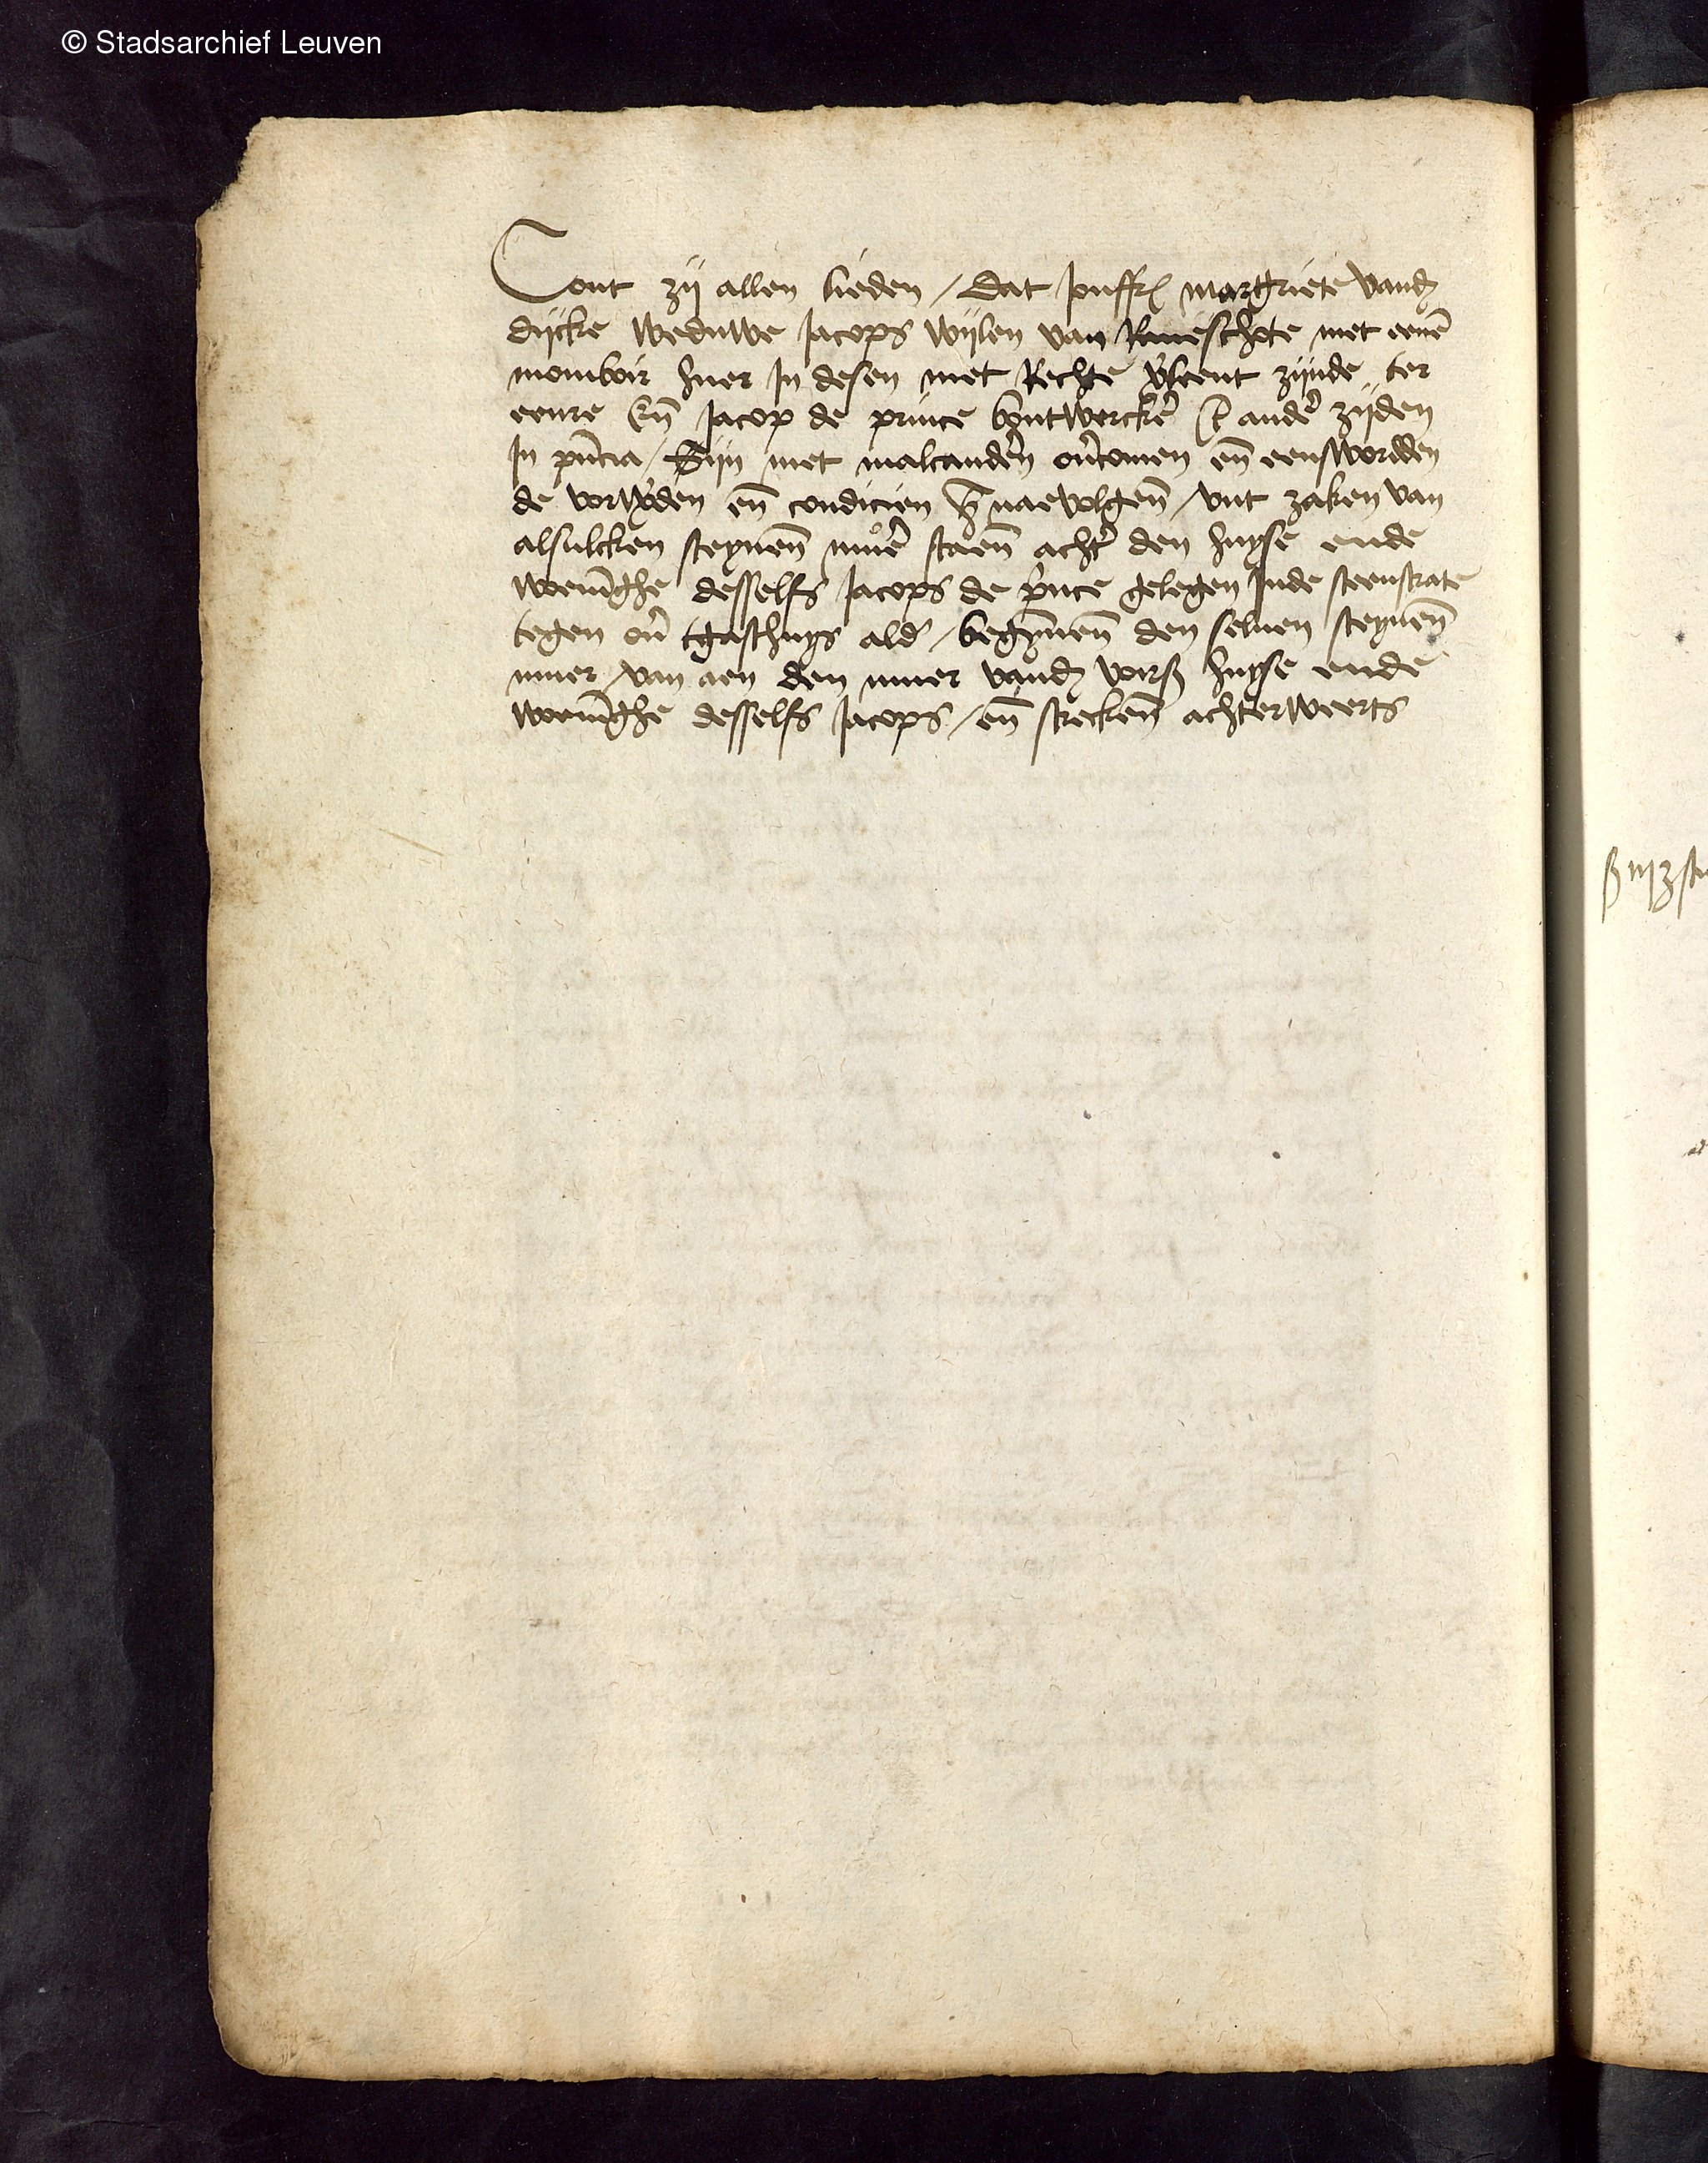 © Stadsarchief Leuven
Cont zij allen lieden / dat jouffr margriete vand
dijcke weduwe Jacops wijlen van Rueschote met eenē
momboir huer in desen met Rechte v̓leent zijnde ter
eenre En̄ Jacop de prince bontwercker̄ t andēr zijden
In pn̄cia / Sijn met malcandēn ov̓comen en̄ eenswordden
de vorwerden en̄ condicien h̄ naevolgen̄ / vut zaken van
alsulcken steynen̄ muēr staen̄ acht̓ den huyse ende
wonīghe desselfs Jacops de p̓nce gelegen Inde steenstrate
tegen ov̓ tgasthuys ald̓ / begynnen̄ den seluen steynen̄
muer / van aen den muer vand vors huyse ende
wonīghe desselfs Jacops / en̄ strecken̄ achterweerts